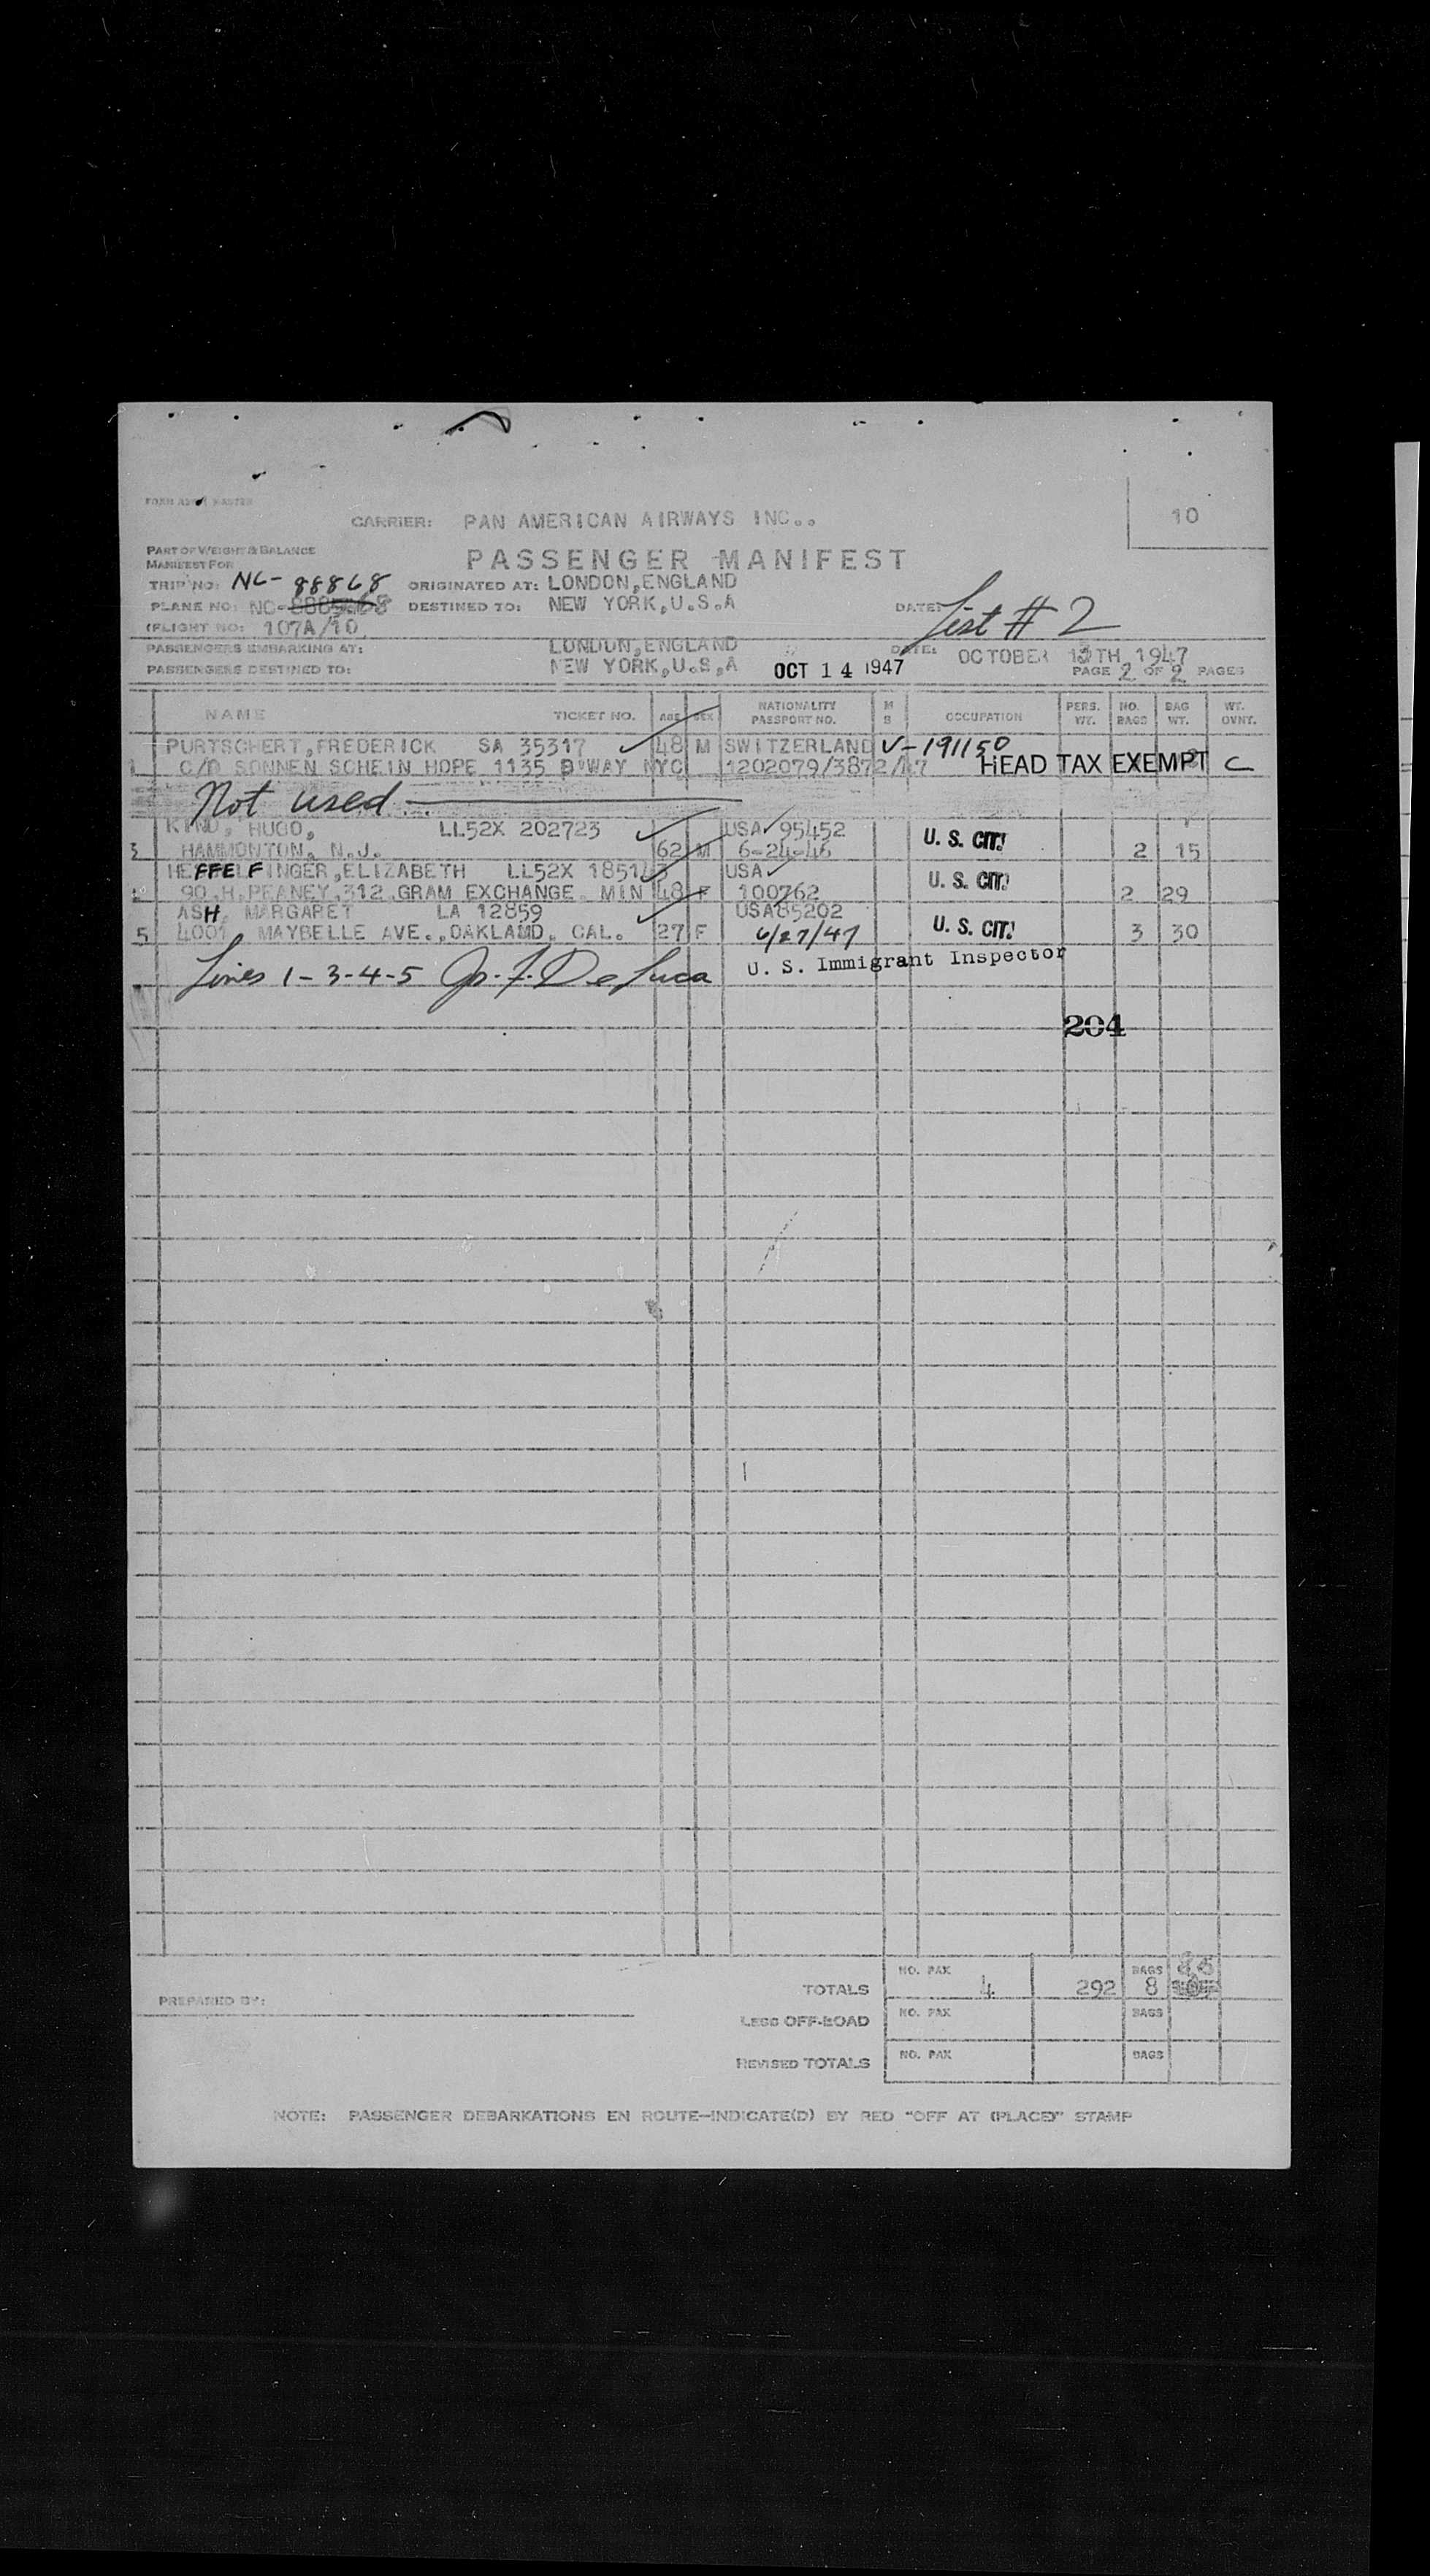 10
CARRIER: PAN AMERICAN AIRWAYS INC..
PART OF WEIGHT & BALANCE
MANIFEST FOR
PASSENGER MANIFEST
TRIP NO: NC-88868 ORIGINATED AT: LONDON,ENGLAND
PLANE NO: NC- DESTINED TO: NEW YORK,U.S.A DATE: List # 2
(FLIGHT NO: 107A/10
PASSENGERS EMBARKING AT: LONDON,ENGLAND DATE: OCTOBER 13TH 1947
PASSENGERS DESTINED TO: NEW YORK,U.S.A OCT 14 1947 PAGE 2 OF 2 PAGES
NAME TICKET NO. AGE SEX NATIONALITY PASSPORT NO. M S OCCUPATION PERS. WT. NO. BAGS BAG WT. WT. OVNT.
PURTSCHERT,FREDERICK SA 35317 48 M SWITZERLAND V-191150
1 C/O SONNEN SCHEIN HOPE 1135 B'WAY NYC 1202079/3872/47 HEAD TAX EXEMPT C
Not used
KIND, HUGO, LL52X 202723 USA 95452 U. S. CIT.
3 HAMMONTON, N.J. 62 M 6-24-46 2 15
HEFFELFINGER,ELIZABETH LL52X 185143 USA U. S. CIT.
90.H.PEANEY,312,GRAM EXCHANGE. MIN 48 F 100762 2 29
ASH, MARGARET LA 12859 USA85202 U. S. CIT.
5 4001 MAYBELLE AVE.,OAKLAND, CAL. 27 F 6/27/47 3 30
Lines 1-3-4-5 Jos. F. De Luca U. S. Immigrant Inspector
204
TOTALS NO. PAX 4 292 BAGS 8
PREPARED BY:
LESS OFF-LOAD NO. PAX BAGS
REVISED TOTALS NO. PAX BAGS
NOTE: PASSENGER DEBARKATIONS EN ROUTE—INDICATE(D) BY RED "OFF AT (PLACE)" STAMP